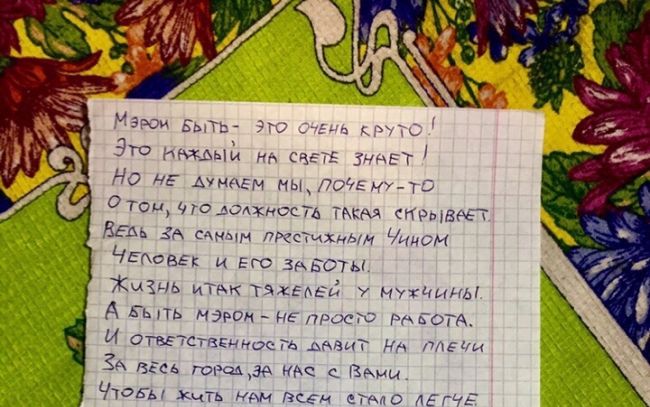 Мэром быть - это очень круто!
Это каждый на свете знает!
Но не думаем мы, почему-то
О том, что должность такая скрывает.
Ведь за самым престижным чином
Человек и его заботы.
Жизнь итак тяжелей у мужчины.
А быть мэром - не просто работа.
И ответственность давит на плечи
За весь город, за нас с вами.
Чтобы жить нам всем стало легче